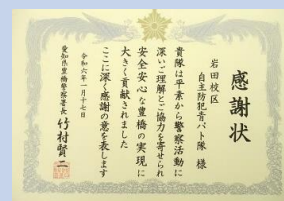 感謝状
岩田校区
自主防犯青パト隊 様
貴隊は平素から警察活動に
深いご理解とご協力を寄せられ
安全安心な豊橋の実現に
大きく貢献されました
ここに深く感謝の意を表します
令和六年一月十七日
愛知県豊橋警察署長 竹村賢二